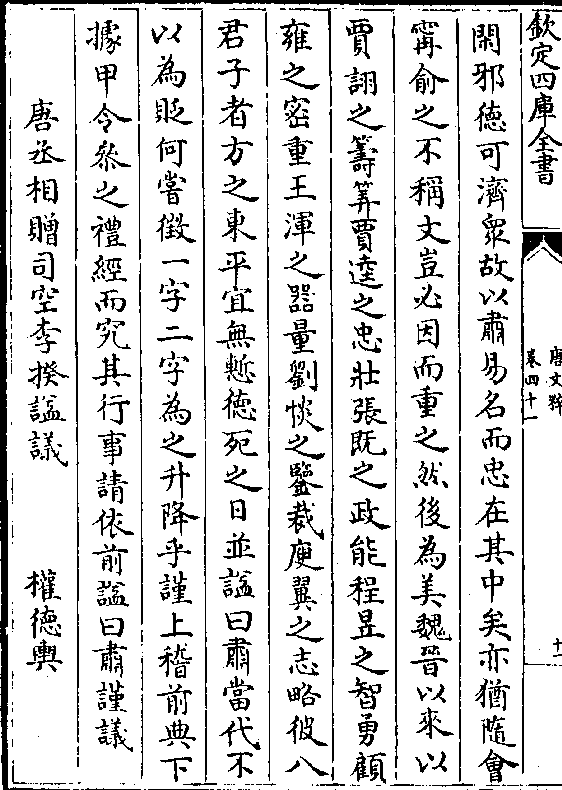 欽定四庫全書
唐文粹
卷四十一
十一
閑邪德可濟衆故以肅易名而忠在其中矣亦猶隨會
甯俞之不稱文豈必因而重之然後為美魏晉以來以
賈詡之籌筭賈逵之忠壯張既之政能程昱之智勇顧
雍之密重王渾之器量劉惔之鑒裁庾翼之志略彼八
君子者方之東平宜無慙德死之日並謚曰肅當代不
以為貶何嘗徵一字二字為之升降乎謹上稽前典下
據甲令叅之禮經而究其行事請依前謚曰肅謹議
唐丞相贈司空李揆謚議
權德輿